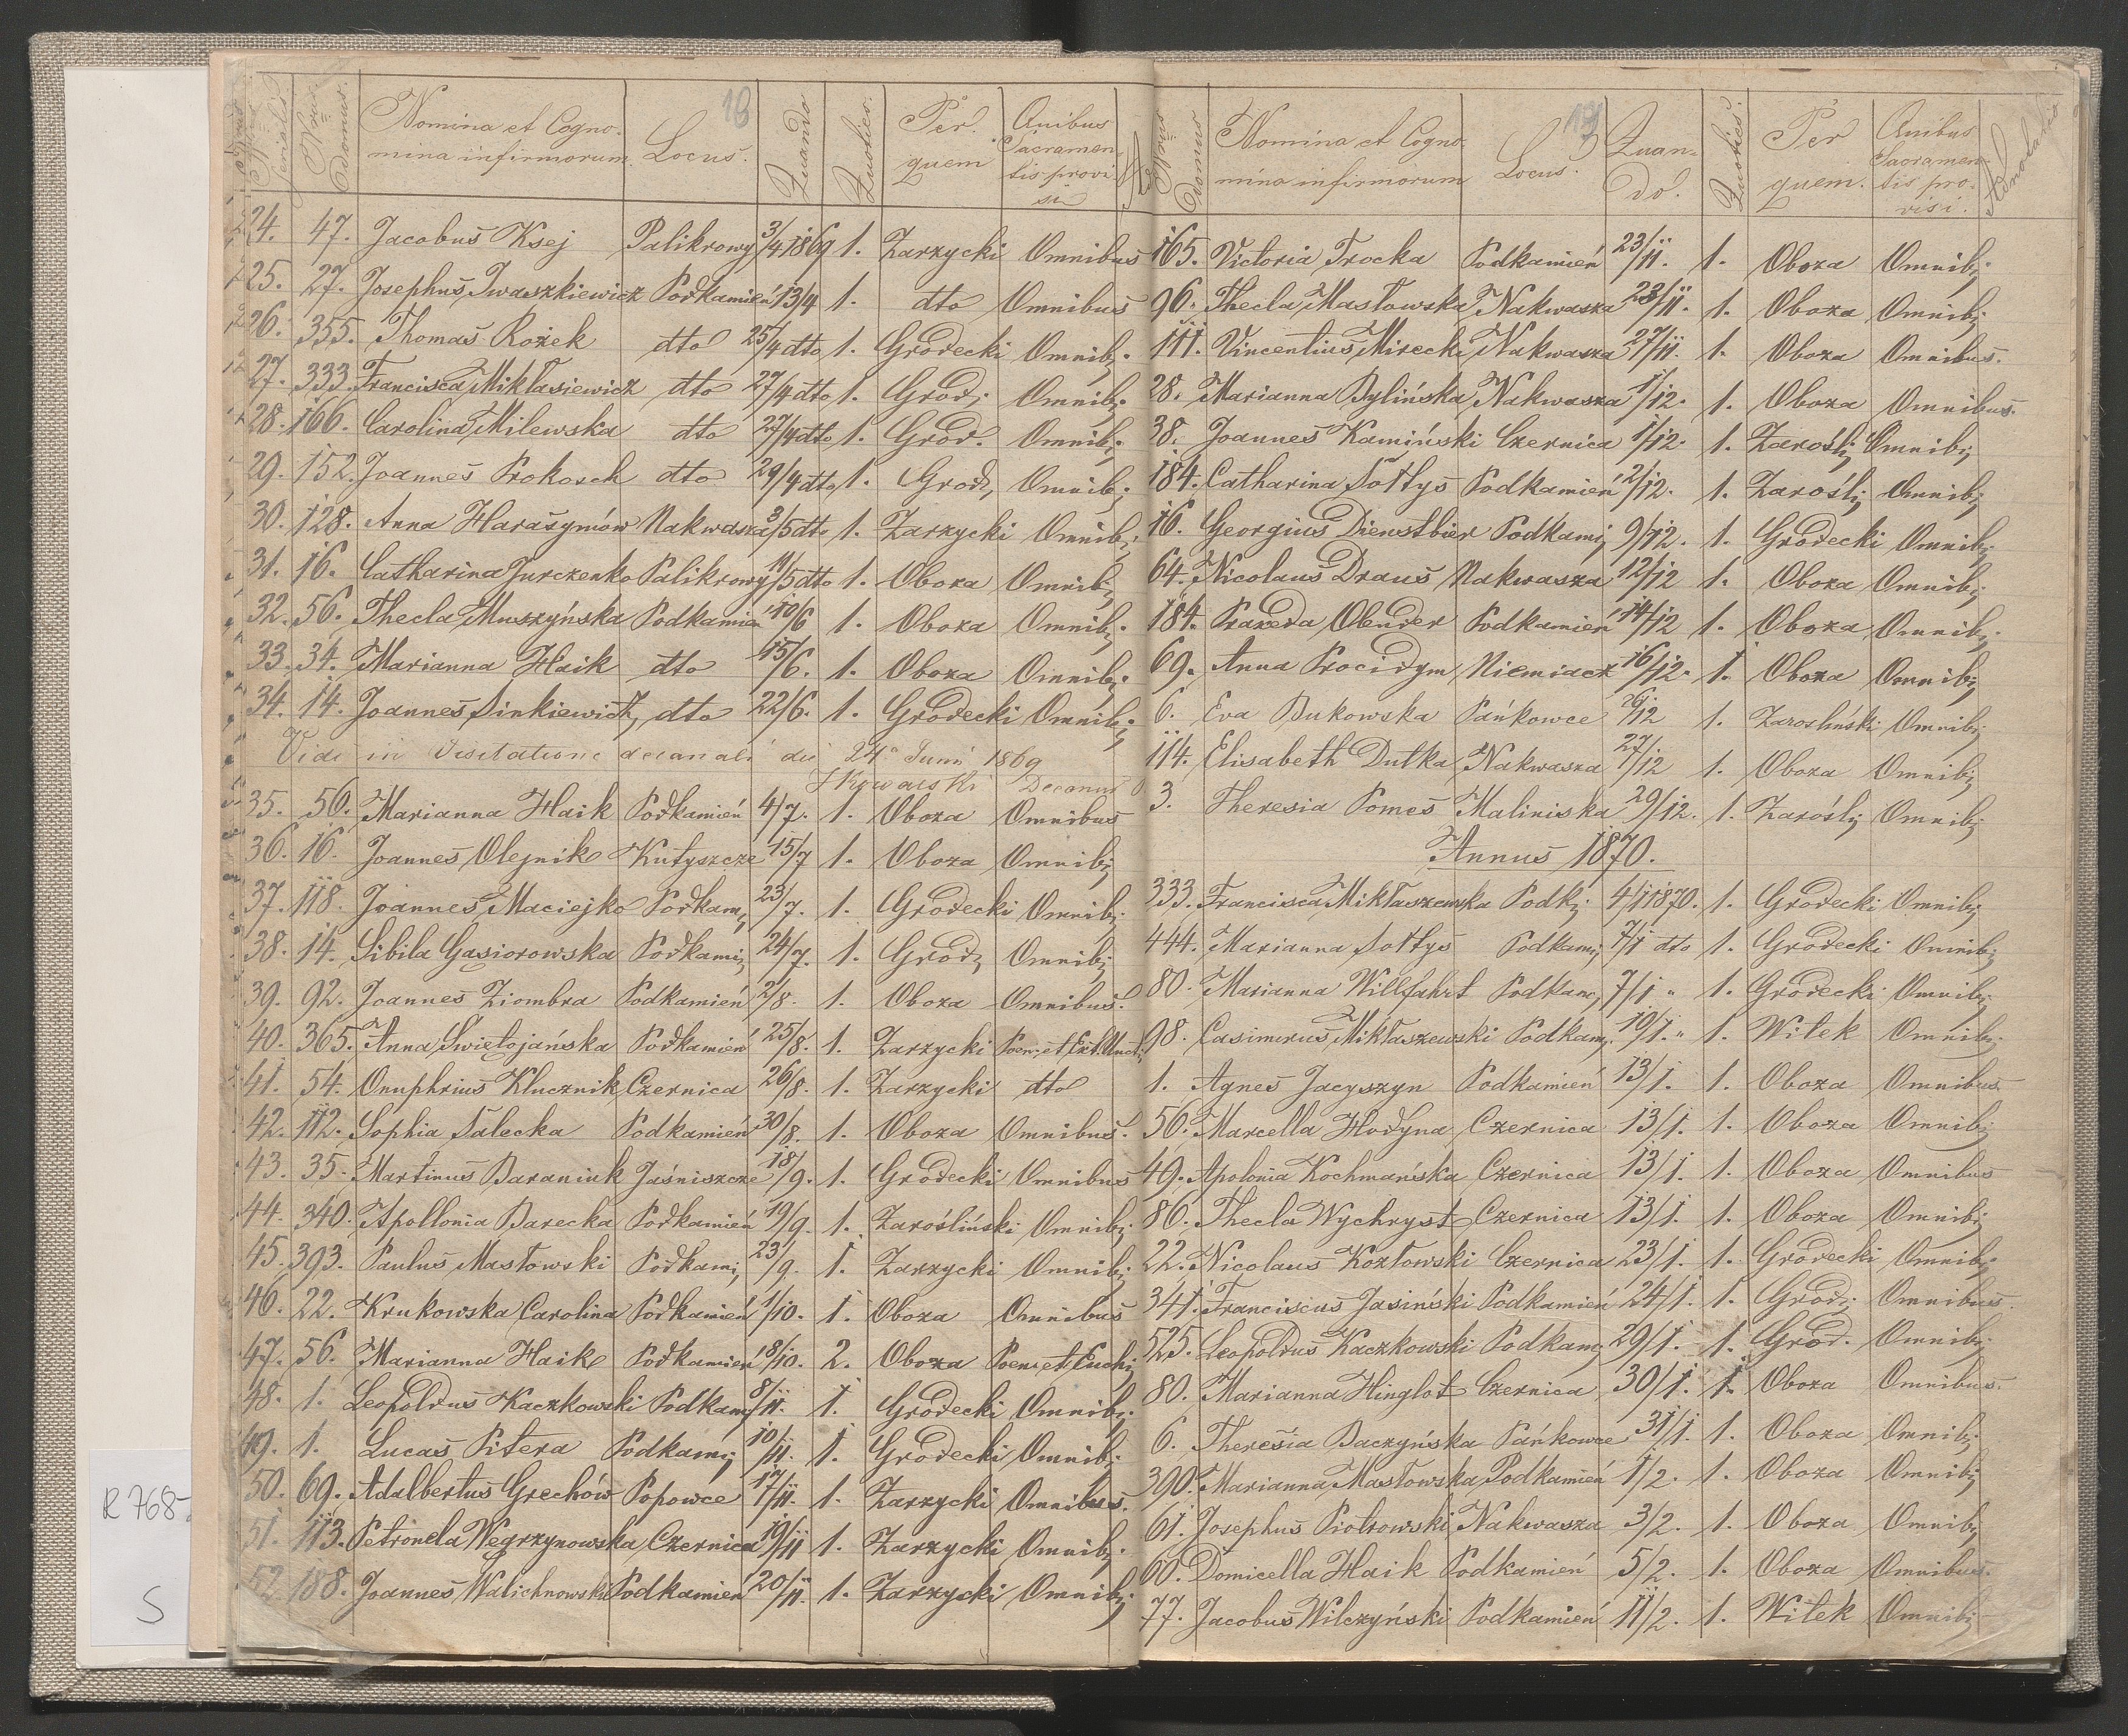 18
Nrus Serialis
Nrus Domus.
Nomina et Cogno-
mina infirmorum.
Locus.
Quando
Quoties.
Per
quem
Quibus
Sacramen-
tis provi-
si
24. 47. Jacobus Ksej Palikrowy 3/4 1869 1. Zarzycki Omnibus
25. 27. Josephus Iwaszkiewicz Podkamień 13/4 1. dto Omnibus
26. 355. Thomas Rożek dto 25/4 dto 1. Grodecki Omnib;
27. 333. Francisca Mikłasiewicz dto 27/4 dto 1. Grod; Omnib;
28. 166. Carolina Milewska dto 27/4 dto 1. Grod. Omnib;
29. 152. Joannes Prokosch dto 29/4 dto 1. Grod, Omnib;
30. 128. Anna Harasymów Nakwasza 3/5 dto 1. Zarzycki Omnib;
31. 16. Catharina Jurczenko Palikrowy 19/5 dto 1. Oboza Omnib;
32. 56. Thecla Muszyńska Podkamień 10/6 1. Oboza Omnib;
33. 34. Marianna Haik dto 15/6. 1. Oboza Omnib;
34. 14. Joannes Sinkiewicz, dto 22/6. 1. Grodecki Omnib;
Vidi in Visitatione decanali die 24a Junii 1869
JKowalski Decanus
35. 50. Marianna Haik Podkamień 4/7. 1. Oboza Omnibus
36. 16. Joannes Olejnik Kutyszcze 15/7 1. Oboza Omnib;
37. 118. Joannes Maciejko Podkam, 23/7. 1. Grodecki Omnib;
38. 14. Sibila Gasiorowska Podkami; 24/7. 1. Grod; Omnib;
39. 92. Joannes Ziombra Podkamień 2/8. 1. Oboza Omnibus.
40. 365. Anna Swiętojańska Podkamień 25/8. 1. Zarzycki Poen; et Ext. Unct;
41. 54. Onuphrius Klucznik Czernica 26/8. 1. Zarzycki dto
42. 112. Sophia Salecka Podkamień 30/8. 1. Oboza Omnibus.
43. 35. Martinus Baraniuk Jaśniszcze 18/9. 1. Grodecki Omnibus
44. 340. Apollonia Barecka Podkamień 19/9. 1. Zarośliński Omnib;
45. 393. Paulus Masłowski Podkami; 23/9. 1. Zarzycki Omnib;
46. 22. Krukowska Carolina Podkamień 1/10. 1. Oboza Omnibus
47. 56. Marianna Haik Podkamień 18/10. 2. Oboza Poen; et Euch;
48. 1. Leopoldus Kaczkowski Podkam; 8/11. 1. Grodecki Omnib;
49. 1. Lucas Pitera Podkami; 10/11. 1. Grodecki Omnib;
50. 69. Adalbertus Grechów Popowce 17/11. 1. Zarzycki Omnibus.
51. 113. Petronela Węgrzynowska Czernica 19/11 1. Zarzycki Omnib;
52. 188. Joannes Walichnowski Podkamień 20/11. 1. Zarzycki Omnib;
19
Nrus Domus
Nomina et Cogno-
mina infirmorum
Locus.
Quan-
do.
Quoties.
Per
quem.
Quibus
Sacramen-
tis pro-
visi.
Adnotatio
165. Victoria Trocka Podkamień 23/11. 1. Oboza Omnib;
96. Thecla Masłowska Nakwasza 23/11. 1. Oboza Omnib;
111. Vincentius Mirecki Nakwasza 27/11. 1. Oboza Omnibus.
28. Marianna Bylińska Nakwasza 1/12. 1. Oboza Omnibus.
38. Joannes Kamiński Czernica 1/12. 1. Zarośl; Omnib;
184. Catharina Sołtys Podkamień 2/12. 1. Zarośl; Omnib;
16. Georgius Dienstbier Podkami; 9/12. 1. Grodecki Omnib;
64. Nicolaus Draus Nakwasza 12/12 1. Oboza Omnib;
184. Praxeda Olender Podkamień 14/12 1. Oboza Omnib;
69. Anna Procidym Niemiacz 16/12. 1. Oboza Omnib;
6. Eva Bukowska Pańkowce 26/12 1. Zarosliński Omnib;
114. Elisabeth Dutka Nakwasza 27/12 1. Oboza Omnib;
3. Theresia Pomes Maliniska 29/12. 1. Zarośl; Omnib;
Annus 1870.
333. Francisca Mikłaszewska Podk; 4/1 1870. 1. Grodecki Omnib;
444. Marianna Sołtys Podkami; 7/1 dto 1. Grodecki Omnib;
80. Marianna Willfahrt Podkam, 7/1 " 1. Grodecki Omnib;
98. Casimirus Mikłaszewski Podkam; 10/1. " 1. Witek Omnib;
1. Agnes Jacyszyn Podkamień 13/1. 1. Oboza Omnibus
56. Marcella Hodyna Czernica 13/1. 1. Oboza Omnib;
49. Apolonia Kochmańska Czernica 13/1. 1. Oboza Omnibus
86. Thecla Wychryst Czernica 13/1. 1. Oboza Omnib;
22. Nicolaus Kozłowski Czernica 23/1. 1. Grodecki Omnib;
341. Franciscus Jasiński Podkamień 24/1. 1. Grod; Omnibus.
525. Leopoldus Kaczkowski Podkam; 29/1. 1. Grod. Omnib;
80. Marianna Hinglot Czernica 30/1. 1. Oboza Omnibus.
6. Theresia Baczyńska Pańkowce 31/1. 1. Oboza Omnib;
390. Marianna Masłowska Podkamień 1/2. 1. Oboza Omnib;
61. Josephus Piotrowski Nakwasza 3/2. 1. Oboza Omnib;
60. Domicella Haik Podkamień 5/2. 1. Oboza Omnibus.
77. Jacobus Wilczyński Podkamień 11/2. 1. Witek Omnib;
R 768-
S